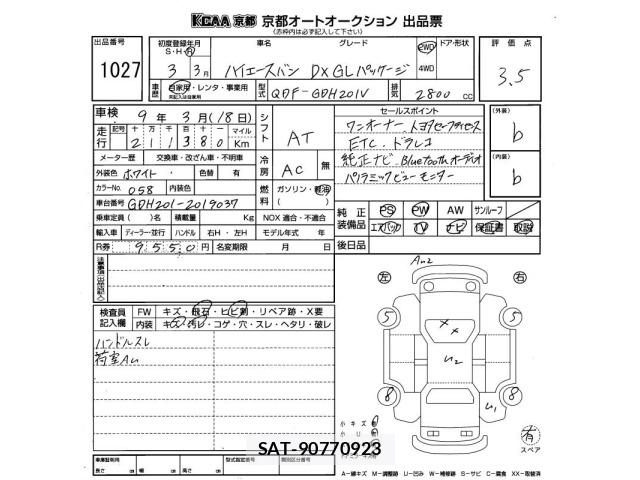 KCAA 京都 京都オートオークション 出品票
(赤枠内は必ず記入して下さい)
出品番号 初度登録年月 車名 グレード ドア・形状 評価点
1027 S・H・R 3年 3月 ハイエースバン DX GLパッケージ 2WD 4WD 3.5
車歴 自家用・レンタ・事業用 型式 QDF-GDH201V 排気 2800 cc
車検 9年 3月(18日) シフト AT セールスポイント (外装)
走行 記号 十 万 千 百 十 一 マイル ワンオーナー、トヨタセーフティセンス b
2 1 1 3 8 0 Km ETC、ドラレコ
メーター歴 交換車・改ざん車・不明車 冷房 AC 無 純正ナビ、Bluetoothオーディオ (内装)
外装色 ホワイト 色替 有 パノラミックビューモニター b
カラーNo. 058 内装色 燃料 ガソリン・軽油
車台番号 GDH201-2019037 ( )
乗車定員( )名 積載量 Kg NOX 適合・不適合 純正装備品 PS PW AW サンルーフ
輸入車 ディーラー・並行 ハンドル 右H・左H モデル年式 年 エアバック TV ナビ 保証書 取説
R券 9550円 名変期限 月 日 後日品
注意事項(出品店記入)
Au2
左 右
検査員記入欄 FW キズ・飛石・ヒビ割・リペア跡・X要
内装 キズ・汚レ・コゲ・穴・スレ・ヘタリ・破レ
ハンドルスレ
荷室Au
5 5
x x
u2
8 8
u1
小キズ
小U
有
スペア
SAT-90770923
車庫証明用 指定認定番号 類別区分番号
長さ cm 幅 cm 高さ cm
A−線キズ M−調整跡 U−凹み W−補修跡 S−サビ C−腐食 XX−取替済